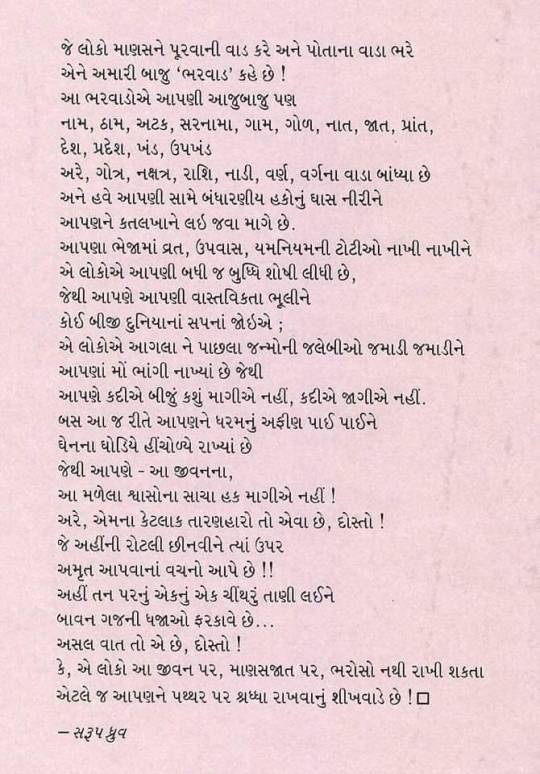 જે લોકો માણસને પૂરવાની વાડ કરે અને પોતાના વાડા ભરે
એને અમારી બાજુ ‘ભરવાડ’ કહે છે !
આ ભરવાડોએ આપણી આજુબાજુ પણ
નામ, ઠામ, અટક, સરનામા, ગામ, ગોળ, નાત, જાત, પ્રાંત,
દેશ, પ્રદેશ, ખંડ, ઉપખંડ
અરે, ગોત્ર, નક્ષત્ર, રાશિ, નાડી, વર્ણ, વર્ગના વાડા બાંધ્યા છે
અને હવે આપણી સામે બંધારણીય હકોનું ઘાસ નીરીને
આપણને કતલખાને લઇ જવા માગે છે.
આપણા ભેજામાં વ્રત, ઉપવાસ, યમનિયમની ટોટીઓ નાખી નાખીને
એ લોકોએ આપણી બધી જ બુધ્ધિ શોષી લીધી છે,
જેથી આપણે આપણી વાસ્તવિકતા ભૂલીને
કોઈ બીજી દુનિયાનાં સપનાં જોઇએ ;
એ લોકોએ આગલા ને પાછલા જન્મોની જલેબીઓ જમાડી જમાડીને
આપણાં મોં ભાંગી નાખ્યાં છે જેથી
આપણે કદીએ બીજું કશું માગીએ નહીં, કદીએ જાગીએ નહીં.
બસ આ જ રીતે આપણને ધરમનું અફીણ પાઈ પાઈને
ઘેનના ઘોડિયે હીંચોળ્યે રાખ્યાં છે
જેથી આપણે - આ જીવનના,
આ મળેલા શ્વાસોના સાચા હક માગીએ નહીં !
અરે, એમના કેટલાક તારણહારો તો એવા છે, દોસ્તો !
જે અહીંની રોટલી છીનવીને ત્યાં ઉપર
અમૃત આપવાનાં વચનો આપે છે !!
અહીં તન પરનું એકનું એક ચીંથરું તાણી લઈને
બાવન ગજની ધજાઓ ફરકાવે છે...
અસલ વાત તો એ છે, દોસ્તો !
કે, એ લોકો આ જીવન પર, માણસજાત પર, ભરોસો નથી રાખી શકતા
એટલે જ આપણને પથ્થર પર શ્રધ્ધા રાખવાનું શીખવાડે છે ! □
– સરૂપ ધ્રુવ